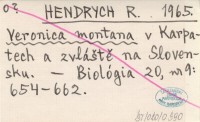 o2
HENDRYCH R. 1965.
Veronica montana v Karpa-
tech a zvláště na Sloven-
sku. — Biológia 20, nr 9:
654-662.